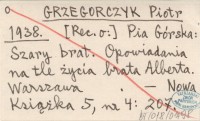 GRZEGORCZYK Piotr
1938. [Rec. o:] Pia Górska:
Szary brat. Opowiadania
na tle życia brata Alberta.
Warszawa . — Nowa
Książka 5, na 4: 207.